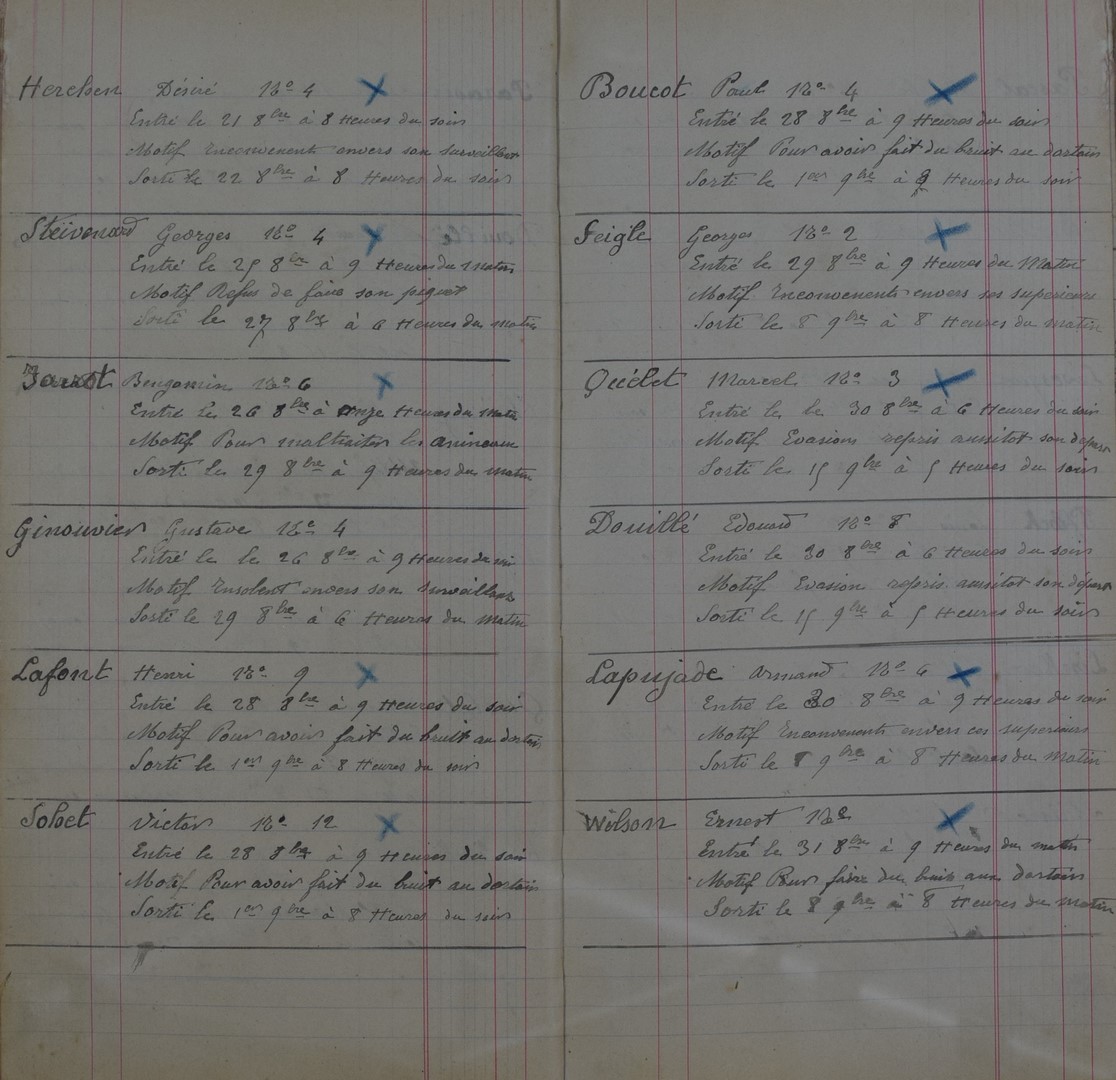 Herchen Désiré No 4
Entré le 21 8bre à 8 Heures du soir
Motif Inconvenent envers son surveillant
Sorti le 22 8bre à 8 Heures du soir
Steivenard Georges No 4
Entré le 25 8bre à 9 Heures du matin
Motif Refus de faire son piquet
Sorti le 27 8bre à 6 Heures du matin
Benjamin No 6
Entré le 26 8bre à onze Heures du matin
Motif Pour maltraiter les animeaux
Sorti le 29 8bre à 9 Heures du matin
Ginouvier Gustave No 4
Entré le le 26 8bre à 9 Heures du soir
Motif Insolent envers son surveillant
Sorti le 29 8bre à 6 Heures du Matin
Lafont Henri No 9
Entré le 28 8bre à 9 Heures du soir
Motif Pour avoir fait du bruit au dortoir
Sorti le 1er 9bre à 8 Heures du soir
Solet Victor No 12
Entré le 28 8bre à 9 Heures du soir
Motif Pour avoir fait du bruit au dortoir
Sorti le 1er 9bre à 8 Heures du soir
Boucot Paul No 4
Entré le 28 8bre à 9 Heures du soir
Motif Pour avoir fait du bruit au dortoir
Sorti le 1er 9bre à Heures du soir
Feigle Georges No 2
Entré le 29 8bre à 9 Heures du Matin
Motif Inconvenents envers ses superieurs
Sorti le 8 9bre à 8 Heures du matin
Quélet Marcel No 3
Entré le le 30 8bre à 6 Heures du soir
Motif Evasions repris aussitot son depart
Sorti le 15 9bre à 5 Heures du soir
Douillé Edouard No 8
Entré le 30 8bre à 6 Heures du soir
Motif Evasion repris aussitot son départ
Sorti le 15 9bre à 5 Heures du soir
Lapujade Armand No 6
Entré le 30 8bre à 9 Heures du soir
Motif Inconvenents envers ces superieurs
Sorti le 8 9bre à 8 Heures du Matin
Wilson Ernest No 2
Entré le 31 8bre à 9 Heures du matin
Motif Pour faire du bruit aux dortoirs
Sorti le 8 9bre à 8 Heures du matin